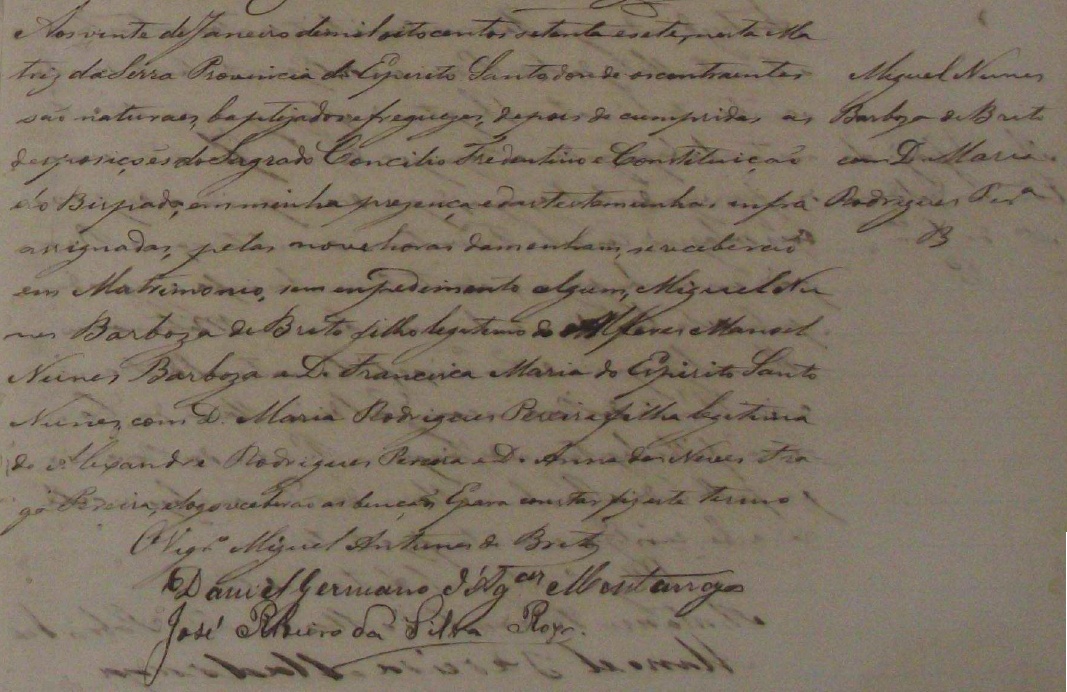 Aos vinte de Janeiro de mil oito centos setenta e sete, nesta Ma
triz da Serra Provincia do Espirito Santo donde os contraentes
são naturaes, baptizados e freguezes, depois de cumpridas as
desposições do Sagrado Concilio Tredentino e Constituição
do Bispado, em minha presença e das testemunhas infra
assignadas, pelas nove horas da manham, se receberão
em Matrimonio, sem empedimento algum, Miguel Nu
nes Barboza de Brito filho legitimo do Alferes Manoel
Nunes Barboza e D. Francisca Maria do Espirito Santo
Nunes, com D. Maria Rodrigues Pereira filha legitima
de Alexandre Rodrigues Pereira e D. Anna das Neves Fra
ga Pereira, e logo receberão as bençãos E para constar fiz este termo
O Vigr.º Miguel Antunes de Brito
Daniel Germano d'Ag.ar Montarroyos
José Ribeiro da Silva Roza.
Miguel Nunes
Barboza de Brito
com D. Maria
Rodrigues Per.a
B